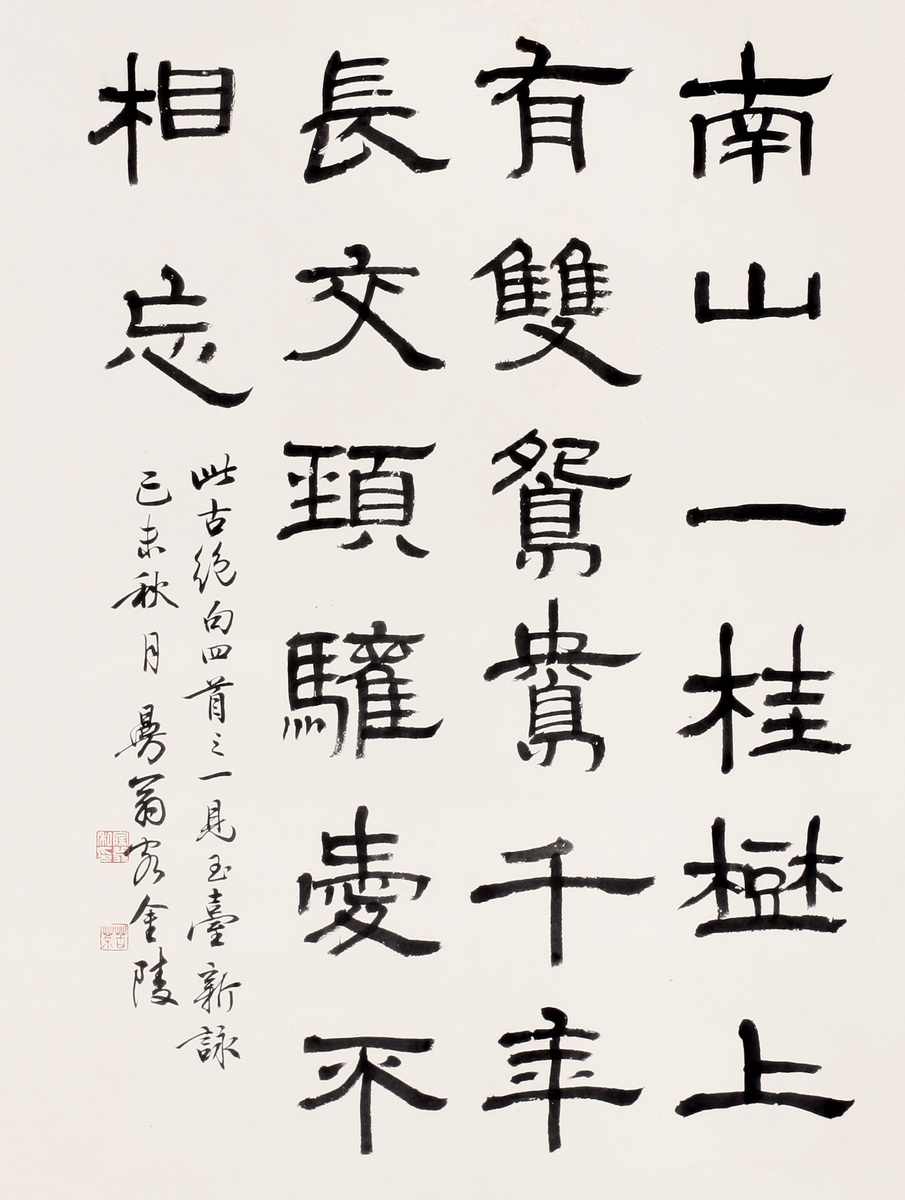 南山一桂樹上
有雙鴛鴦千年
長交頸驩愛不
相忘
此古絕句四首之一見玉臺新詠
己未秋月曼翁客金陵